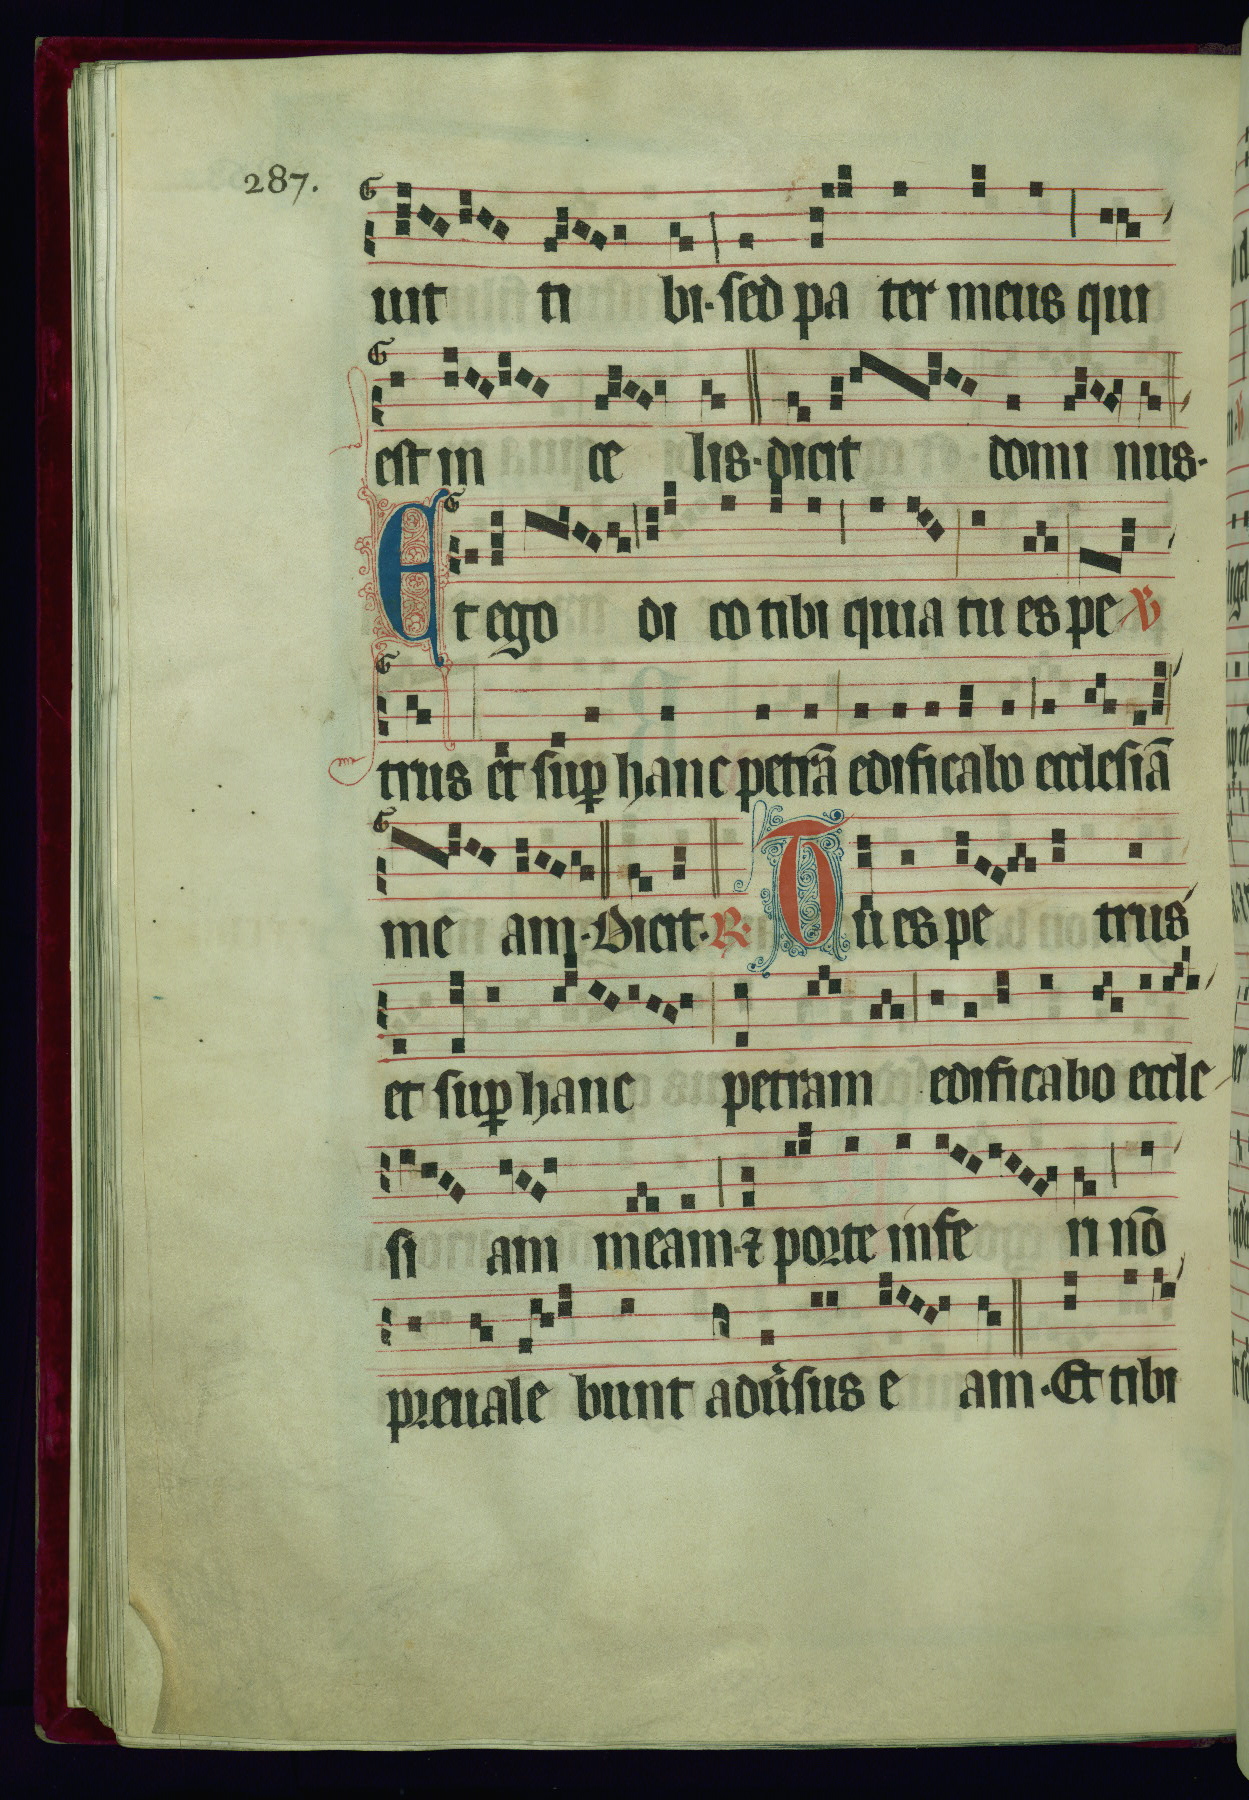 287.
uit ti bi· sed pa ter meus qui
est in ce lis· dicit domi nus·
Et ego di co tibi quia tu es pe ℣
trus et suꝑ hanc petrā edificabo ecclesiā
me am· Dicit· ℟· Tu es pe trus
et suꝑ hanc petram edificabo eccle
si am meam· ⁊ porte infe ri nō
preuale bunt adu̾sus e am· Et tibi